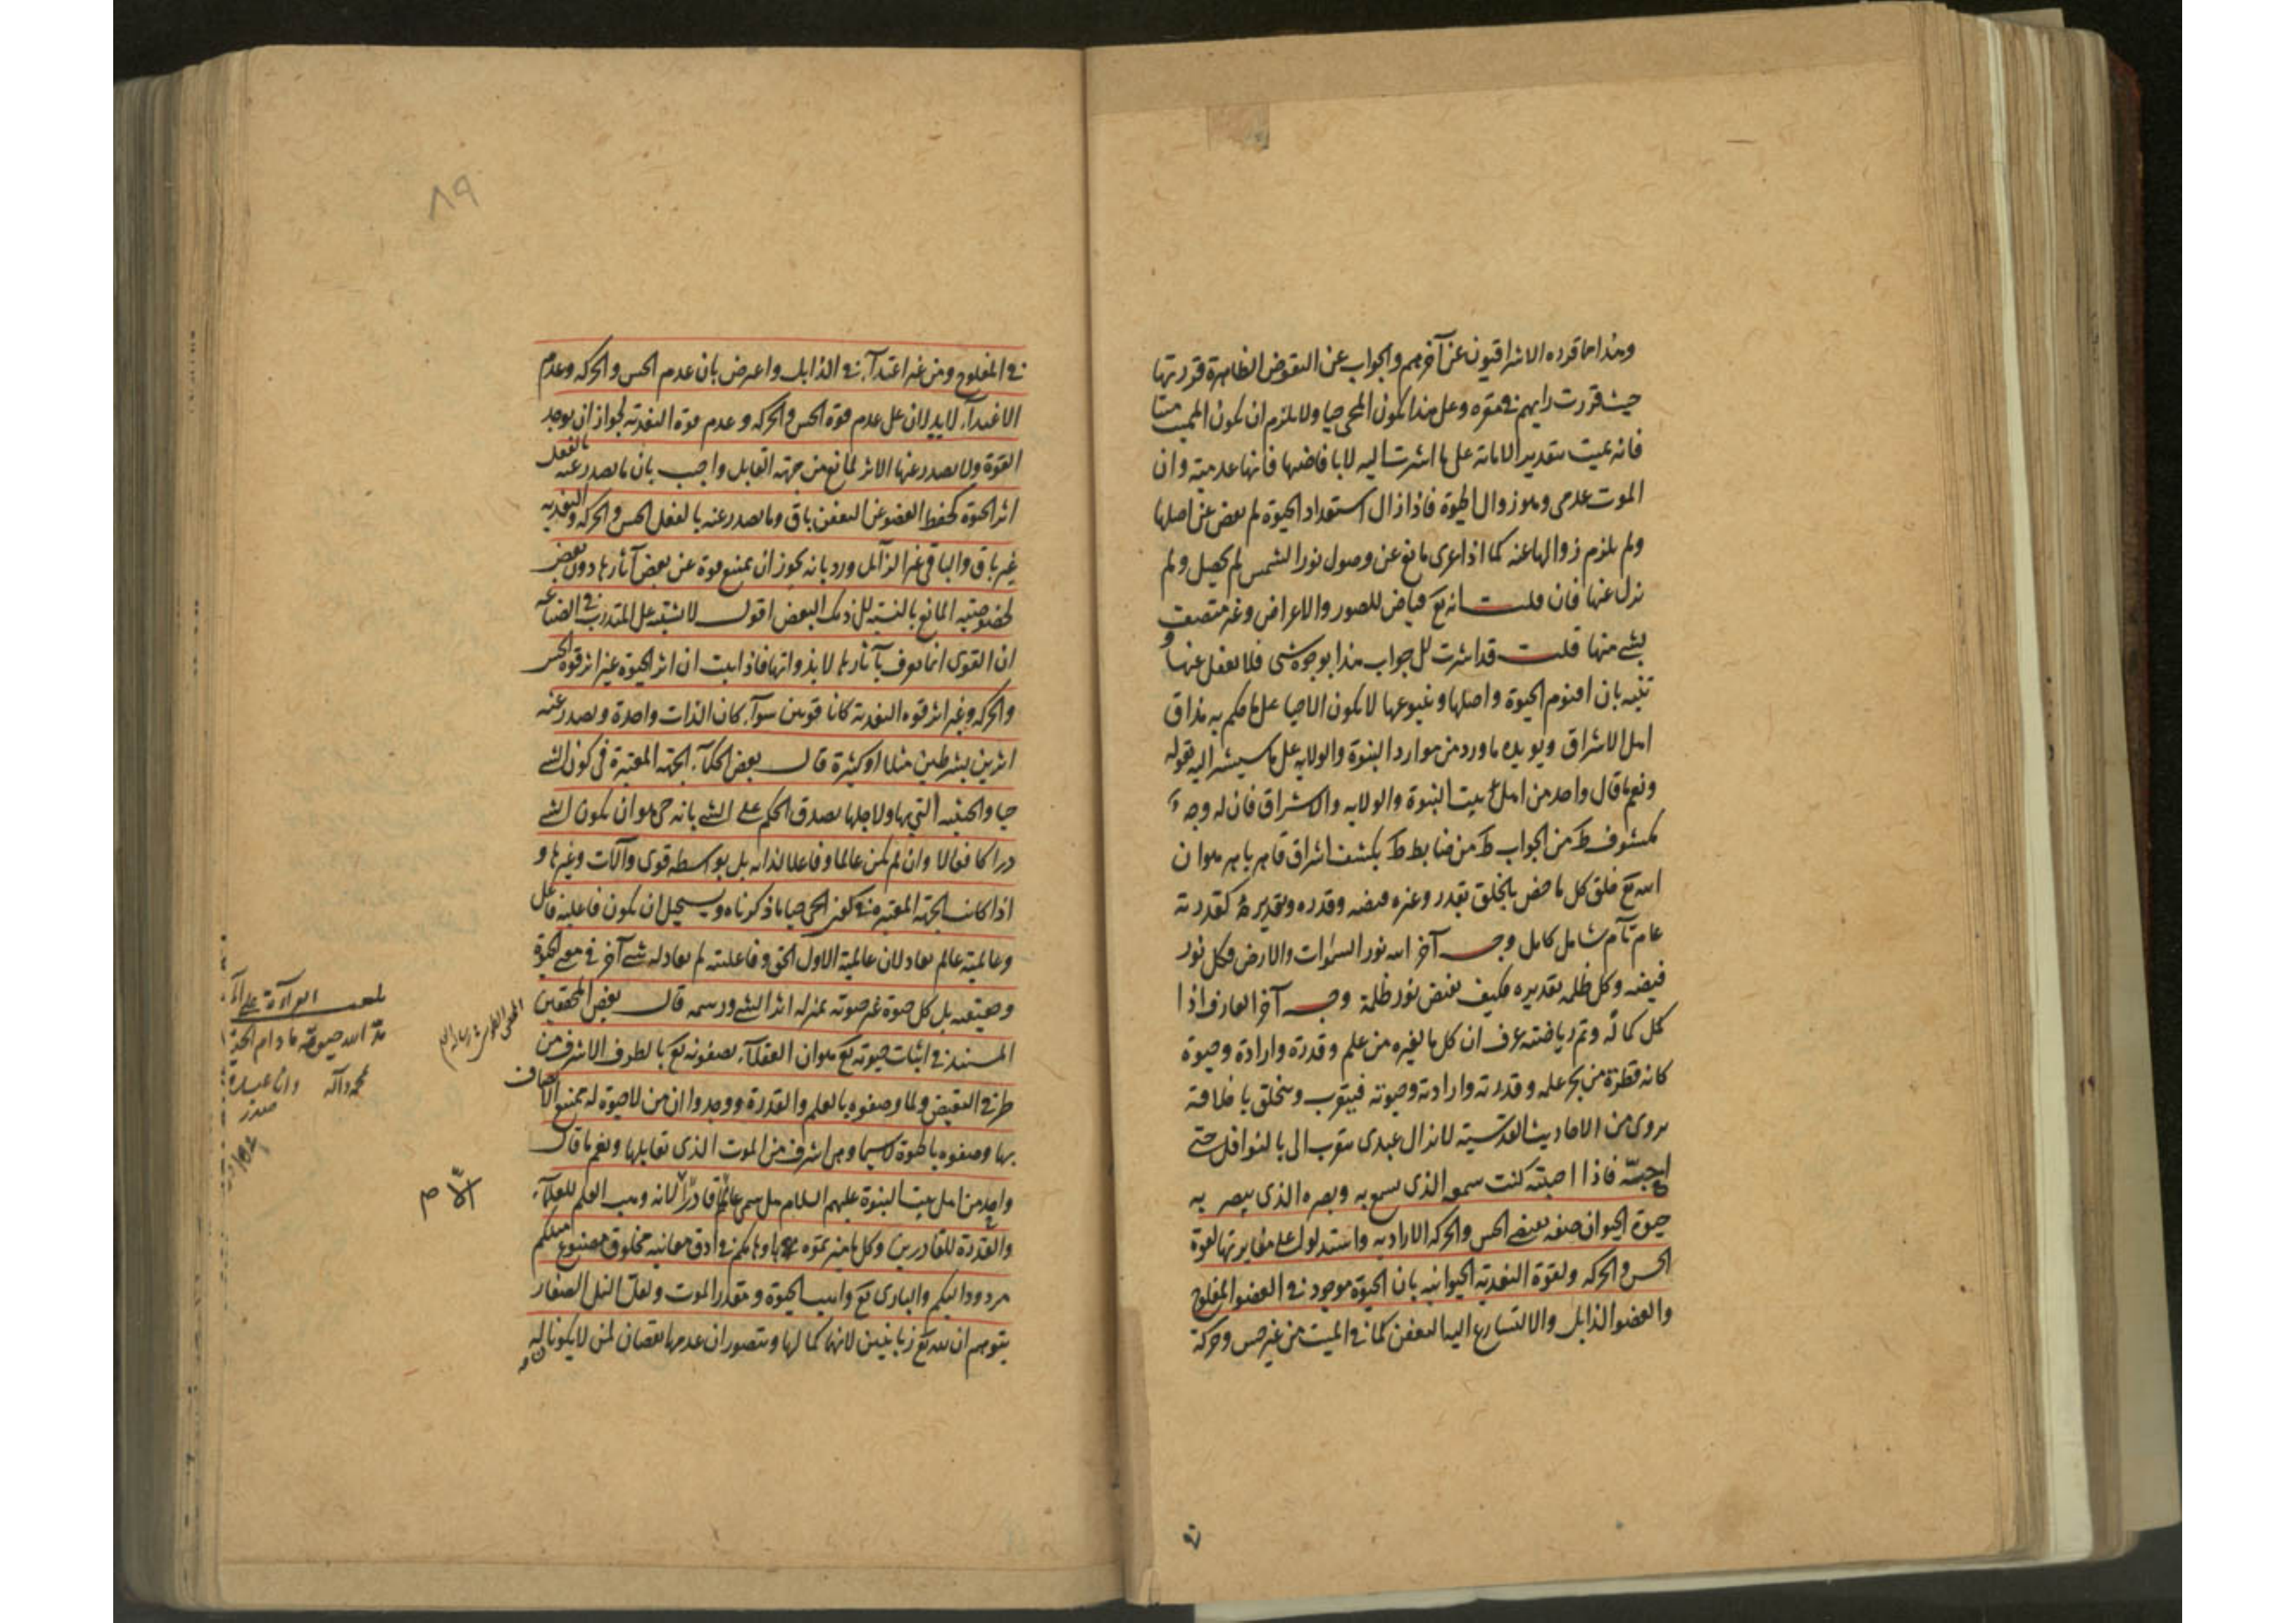 وهذا ما قرره الاشراقيون عن آخرهم والجواب عن النقوض الظاهرة قررتها
حيث قررت رايهم في مقره وعلى هذا يكون المحى حيا ولا يلزم ان يكون المميت ميتا
فانه يميت بتقدير الاماتة على ما اشرت اليه لا بافاضتها فانها عدمية وان
الموت عدمى وهو زوال الحيوة فاذا زال استعداد الحيوة لم يفض عن اصلها
ولم يلزم زوالها عنه كما اذا عرى مانع عن وصول نور الشمس لم يحصل ولم
يزل عنها فان قلت انه تع فياض للصور والاعراض وغير متصف
بشئ منها قلت قد اشرت الى جواب هذا بوجوه شتى فلا تغفل عنها و
تنبه بان اقنوم الحيوة واصلها وينبوعها لا يكون الا حيا على ما حكم به مذاق
اهل الاشراق ويؤيده ما ورد من موارد النبوة والولاية على ما سيشير اليه بقوله
ونعم ما قال واحد من اهل بيت النبوة والولاية والاشراق فان له وجه
مكشوف من الجواب من ضابط يكشف اشراق قاهر باهر هو ان
الله تع خلق كل ما خص بالخلق بقدر وغيره فيضه وقدره وتقديره كقدرته
عام تام شامل كامل وجه آخر الله نور السموات والارض فكل نور
فيضه وكل ظلمة تقديره فكيف يفيض نور ظلمة وجه آخر العارف اذا
كمل كماله وتم رياضته عرف ان كل ما لغيره من علم وقدرة وارادة وحيوة
كانه قطرة من بحر علمه وقدرته وارادته وحيوته فيتقرب ويتخلق باخلاقه
يروى من الاحاديث القدسية لا يزال عبدى يتقرب الى بالنوافل حتى
احبه فاذا احببته كنت سمعه الذى يسمع به وبصره الذى يبصر به
حيوة الحيوان صفة يقتضى الحس والحركة الارادية واستدلوا على مغايرتها لقوة
الحس والحركة ولقوة التغذية الحيوانية بان الحيوة موجودة في العضو المفلوج
والعضو الذابل والا لتسارع اليه التعفن كما في الميت من غير حس وحركة
في المفلوج ومن غير اغتذاء في الذابل واعترض بان عدم الحس والحركة وعدم
الاغتذاء لا يدلان على عدم قوة الحس والحركة وعدم قوة التغذية لجواز ان يوجد
القوة ولا يصدر عنها الاثر لمانع من جهة القابل واجيب بان ما يصدر عنه بالفعل
اثر الحيوة كحفظ العضو عن التعفن باق وما يصدر عنه بالفعل الحس والحركة والتغذية
غير باق والباقى غير الزائل ورد بانه يجوز ان يمنع قوة عن بعض آثارها دون بعض
لخصوصية المانع بالنسبة الى ذلك البعض اقول لا يشتبه على المتدرب في الصناعة
ان القوى انما يعرف بآثارها لا بذواتها فاذا ثبت ان اثر الحيوة غير اثر قوة الحس
والحركة وغير اثر قوة التغذية كانا قوتين سواء كان الذات واحدة ويصدر عنه
اثرين بشرطين مثلا او كثيرة قال بعض الحكماء الجهة المعتبرة في كون الشئ
حيا والحيثية التي بها ولاجلها يصدق الحكم على الشئ بانه حى هو ان يكون الشئ
دراكا فعالا وان لم يكن عالما وفاعلا لذاته بل بواسطة قوى وآلات وغيرها و
اذا كانت الجهة المعتبرة في كون الحى حيا ما ذكرناه ويستحيل ان يكون فاعلية فاعل
وعالمية عالم يعادلان عالمية الاول الحق وفاعليته لم يعادله شئ آخر في معنى الحيوة
وحقيقته بل كل حيوة غير حيوته بمنزلة اثر الشئ ورسمه قال بعض المحققين
المستند في اثبات حيوته تع هو ان العقلاء يصفونه تع بالطرف الاشرف من
طرفى النقيض ولما وصفوه بالعلم والقدرة ووجدوا ان من لا حيوة له يمتنع الاتصاف
بها وصفوه بالحيوة لا سيما وهى اشرف من الموت الذى تقابلها ونعم ما قال
واحد من اهل بيت النبوة عليهم السلام هل سمى عالما قادرا الا لانه وهب العلم للعلماء
والقدرة للقادرين وكل ما ميزتموه باوهامكم في ادق معانيه مخلوق مصنوع مثلكم
مردود اليكم والبارى تع واهب الحيوة ومقدر الموت ولعل النمل الصغار
يتوهم ان لله تع زبانيين لانهما كما لها ويتصور ان عدمها نقصان لمن لا يكونا له
المحقق الطوسى
بلغت القراءة على
مد الله حيوته ما دام
محمد وآله وانا عبده
٨٩